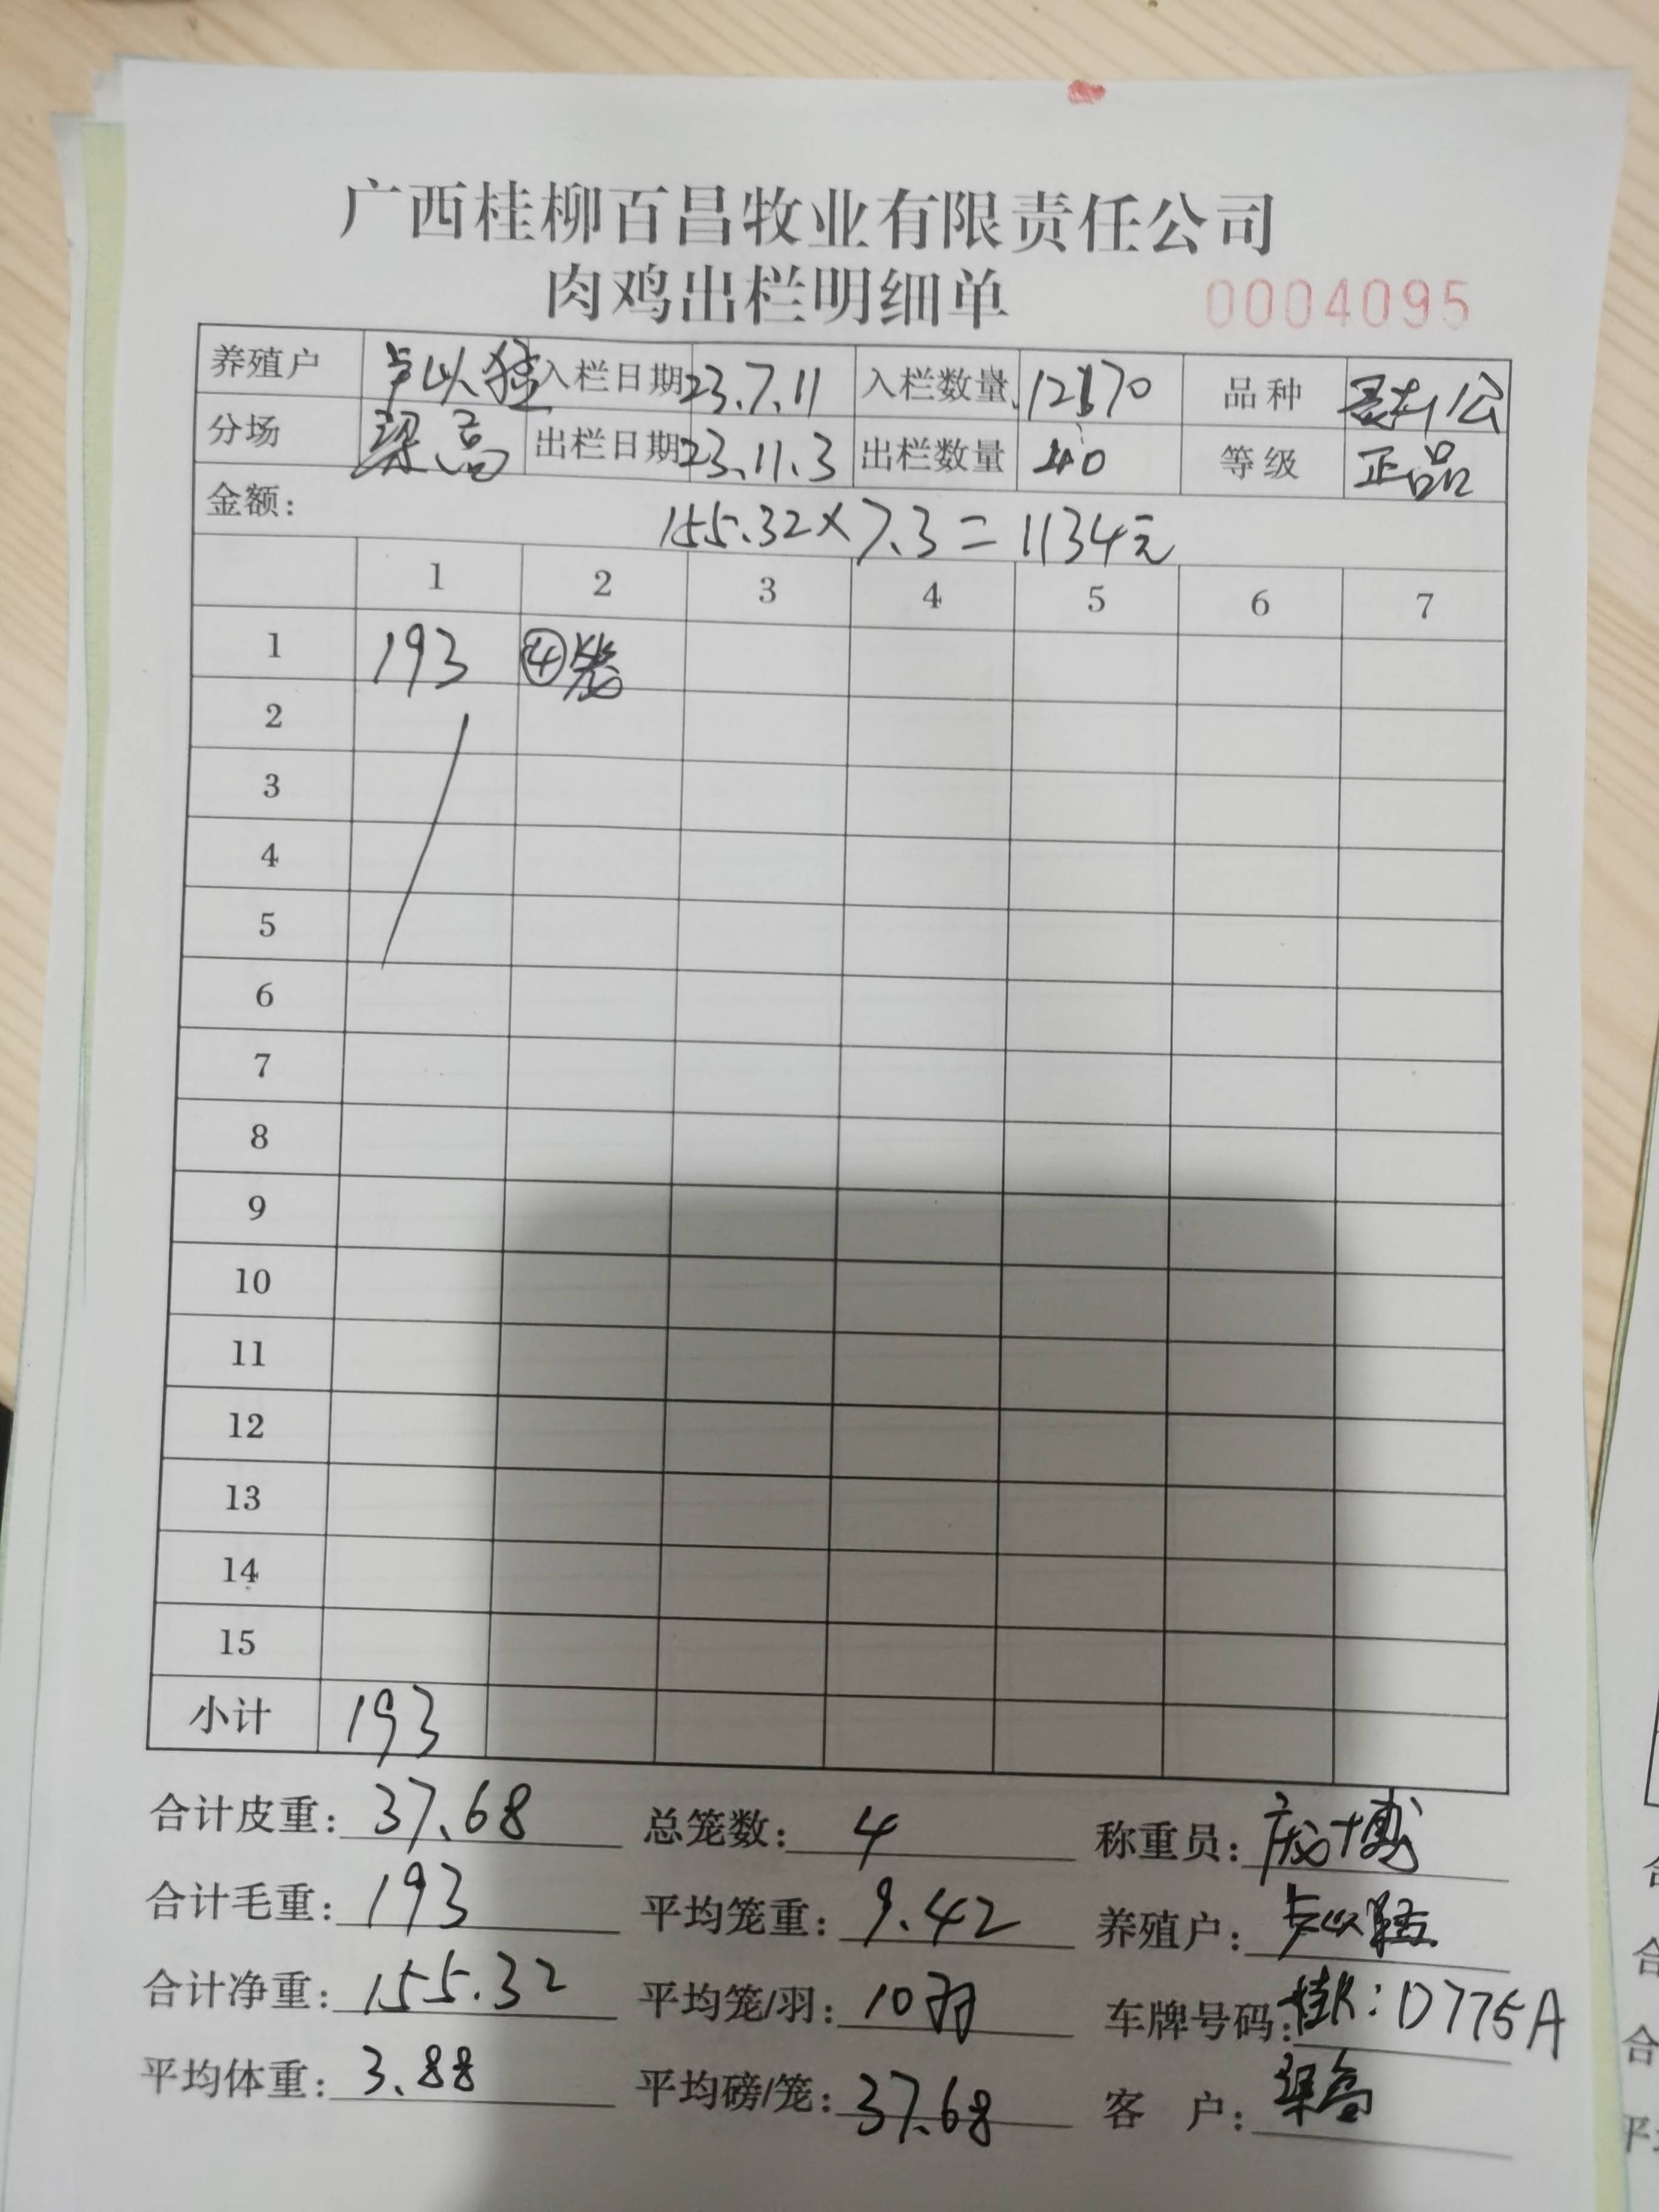 广西桂柳百昌牧业有限责任公司
肉鸡出栏明细单 0004095
养殖户 卢以 入栏日期 23.7.11 入栏数量 12170 品种 公
分场 梁高 出栏日期 23.11.3 出栏数量 40 等级 正品
金额: 155.32×7.3=1134元
1 2 3 4 5 6 7
1 193 ④笼
2
3
4
5
6
7
8
9
10
11
12
13
14
15
小计 193
合计皮重: 37.68 总笼数: 4 称重员: 庞十博
合计毛重: 193 平均笼重: 9.42 养殖户: 卢以
合计净重: 155.32 平均笼/羽: 10羽 车牌号码: 桂R:D775A
平均体重: 3.88 平均磅/笼: 37.68 客 户: 梁高